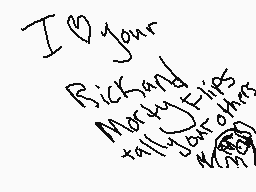 I ♡ your
Rick and
Morty Flips
tally your others